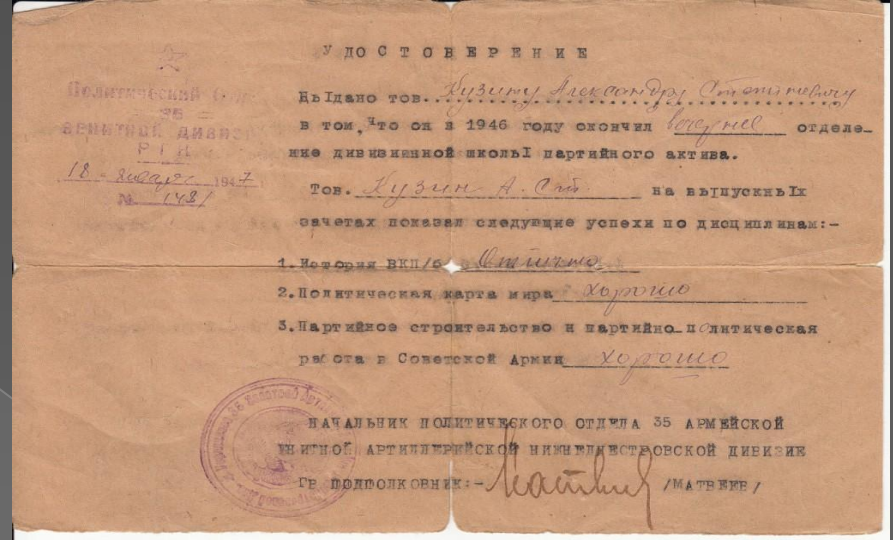 УДОСТОВЕРЕНИЕ
Политический
35
зенитной дивизии
РГК
18 января 1947
№ 1481
Выдано тов. Кузину Александру Степановичу
в том, что он в 1946 году окончил вечернее отделе-
ние дивизионной школы партийного актива.
Тов. Кузин А. Ст. на выпускных
зачетах показал следующие успехи по дисциплинам:-
1. История ВКП/б Отлично
2. Политическая карта мира хорошо
3. Партийное строительство и партийно-политическая
работа в Советской Армии хорошо
НАЧАЛЬНИК ПОЛИТИЧЕСКОГО ОТДЕЛА 35 АРМЕЙСКОЙ
ЕНИТНОЙ АРТИЛЛЕРИЙСКОЙ НИЖНЕДНЕСТРОВСКОЙ ДИВИЗИЕ
ГВ ПОДПОЛКОВНИК:- Матвеев /МАТВЕЕВ/